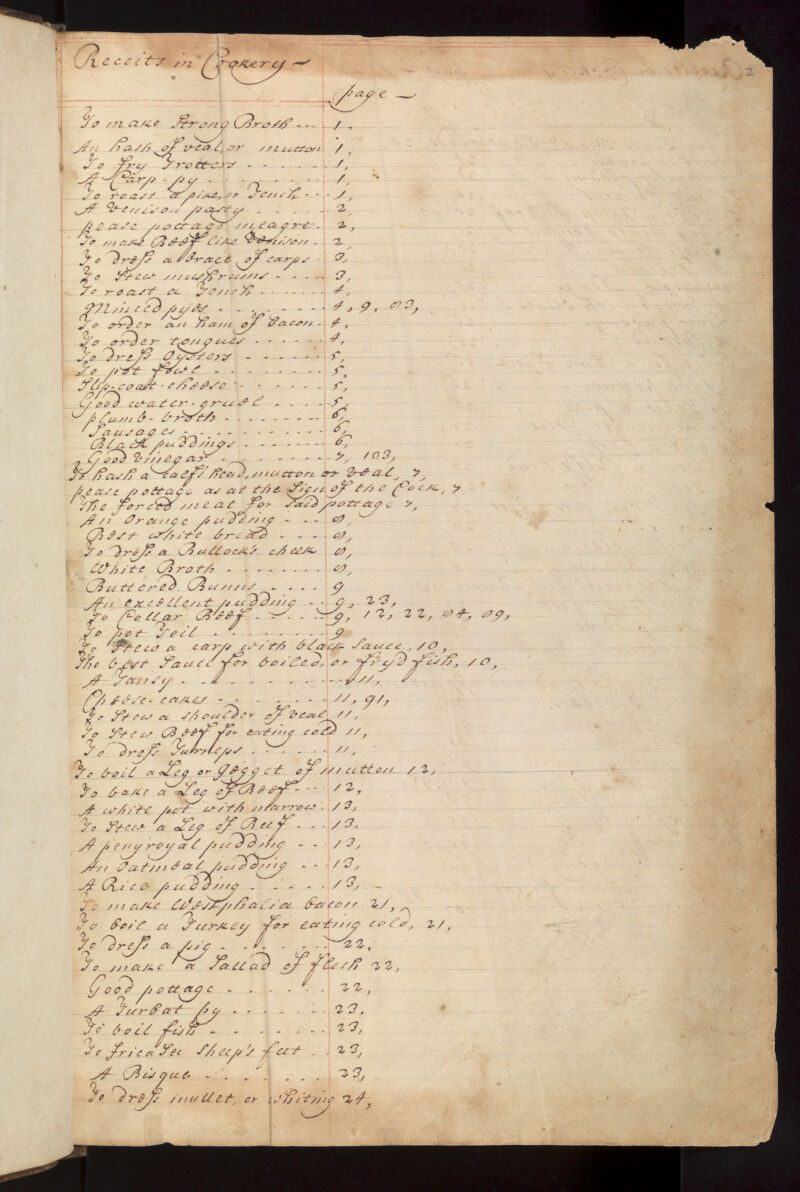 Receits in Cookery
2
page
To make Strong Broth --- 1,
An hash of veal, or mutton 1,
To fry Trotters - - - - - 1,
A Carp-py - - - - - - - 1,
To roast a pike, or Tench - - 1,
A venison pasty - - - - - 2,
pease pottage meagre - 2,
To make Beef like Venison - 2,
To dress a brace of carps - 3,
To Stew mushrums - - - - 3,
To roast a Tench - - - - - 4,
Minced pyes - - - - - - - 4, 9, 83,
To order an ham of bacon - 4,
To order tongues - - - - - 4,
To dress Oysters - - - - - - 5,
To pot fowl - - - - - - - 5,
Slip-coat-cheese - - - - - 5,
Good water-gruel - - - - 5,
plumb-broth - - - - - - - 6,
Sausages - - - - - - - - - 6,
Black puddings - - - - - - 6,
Good vinegar - - - - - - - 7, 103,
To hash a calf's head, mutton or veal, 7,
pease pottage as at the Sign of the Cock, 7
The forced meat for said pottage 7,
An Orange pudding - - - 8,
Best white bread - - - - 8,
To dress a Bullock's cheek 8,
White Broth - - - - - - - 8,
Buttered Bunns - - - - 9
An excellent pudding - - 9, 23,
To Collar Beef - - - - - 9, 12, 22, 84, 89,
To pot Teil - - - - - - - 9
To Stew a carp with black Sauce, 10,
The best Sauce for boiled, or fry'd fish, 10,
A Tansy - - - - - - - - - 11,
Cheese-cakes - - - - - - - 11, 91,
To Stew a shoulder of veal 11,
To Stew Beef for eating cold 11,
To dress Turneps - - - - - 11,
To boil a Leg or Gegget of mutton 12,
To bake a Leg of Beef - - - 12,
A white pot with marrow - 13,
To Stew a Leg of Beef - - - 13,
A penyroyal pudding - - - 13,
An Oatmeal pudding - - - 13,
A Rice pudding - - - - - - 13,
To make Westphalia bacon 21,
To boil a Turkey for eating cold, 21,
To dress a pig - - - - - - - 22,
To make a Sallad of flesh 22,
Good pottage - - - - - - - 22,
A Turbat py - - - - - - - 23,
To boil fish - - - - - - - 23,
To fricasee Sheep's feet - - 23,
A Bisque - - - - - - - - 23,
To dress mullet, or whiting 24,